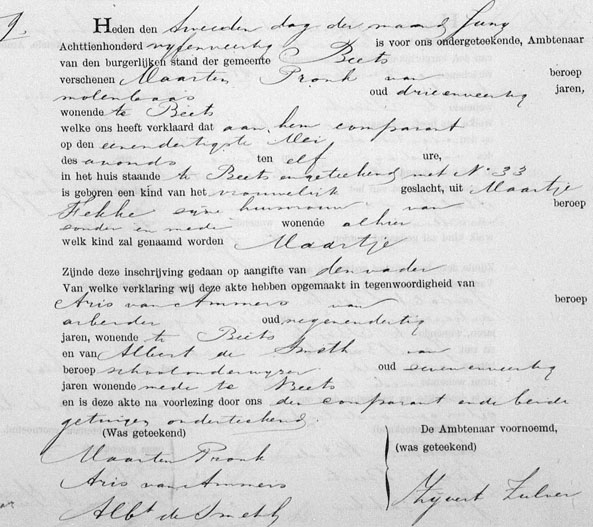 Heden den tweeden dag der maand Juny
Achttienhonderd vyfenveertig is voor ons ondergeteekende, Ambtenaar
van den burgerlijken stand der gemeente Beets
verschenen Maarten Pronk van beroep
molenbaas oud drieenveertig jaren,
wonende te Beets
welke ons heeft verklaard dat aan hem comparant
op den eenendertigste Mei
des avonds ten elf ure,
in het huis staande te Beets ongeteekend met No 33
is geboren een kind van het vrouwelijk geslacht, uit Maartje
Hekke zyne huisvrouw van beroep
zonder en mede wonende alhier
welk kind zal genaamd worden Maartje
Zijnde deze inschrijving gedaan op aangifte van den vader
Van welke verklaring wij deze akte hebben opgemaakt in tegenwoordigheid van
Aris van Ammers van beroep
arbeider oud negenendertig
jaren, wonende te Beets
en van Albert de Smeth van
beroep schoolonderwyzer oud zevenenveertig
jaren wonende mede te Beets
en is deze akte na voorlezing door ons den comparant en de beide
getuigen onderteekend.
(Was geteekend) De Ambtenaar voornoemd,
(was geteekend)
Maarten Pronk
Aris van Ammers
Albt de Smeth